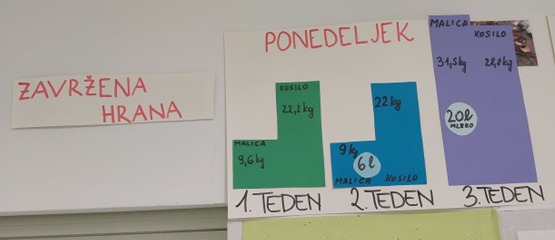 ZAVRŽENA
HRANA
PONEDELJEK
KOSILO
22,2kg
MALICA
9,6kg
1. TEDEN
22kg
9kg
6l
MALICA KOSILO
2. TEDEN
MALICA
KOSILO
31,5kg
20l
MLEKO
3. TEDEN